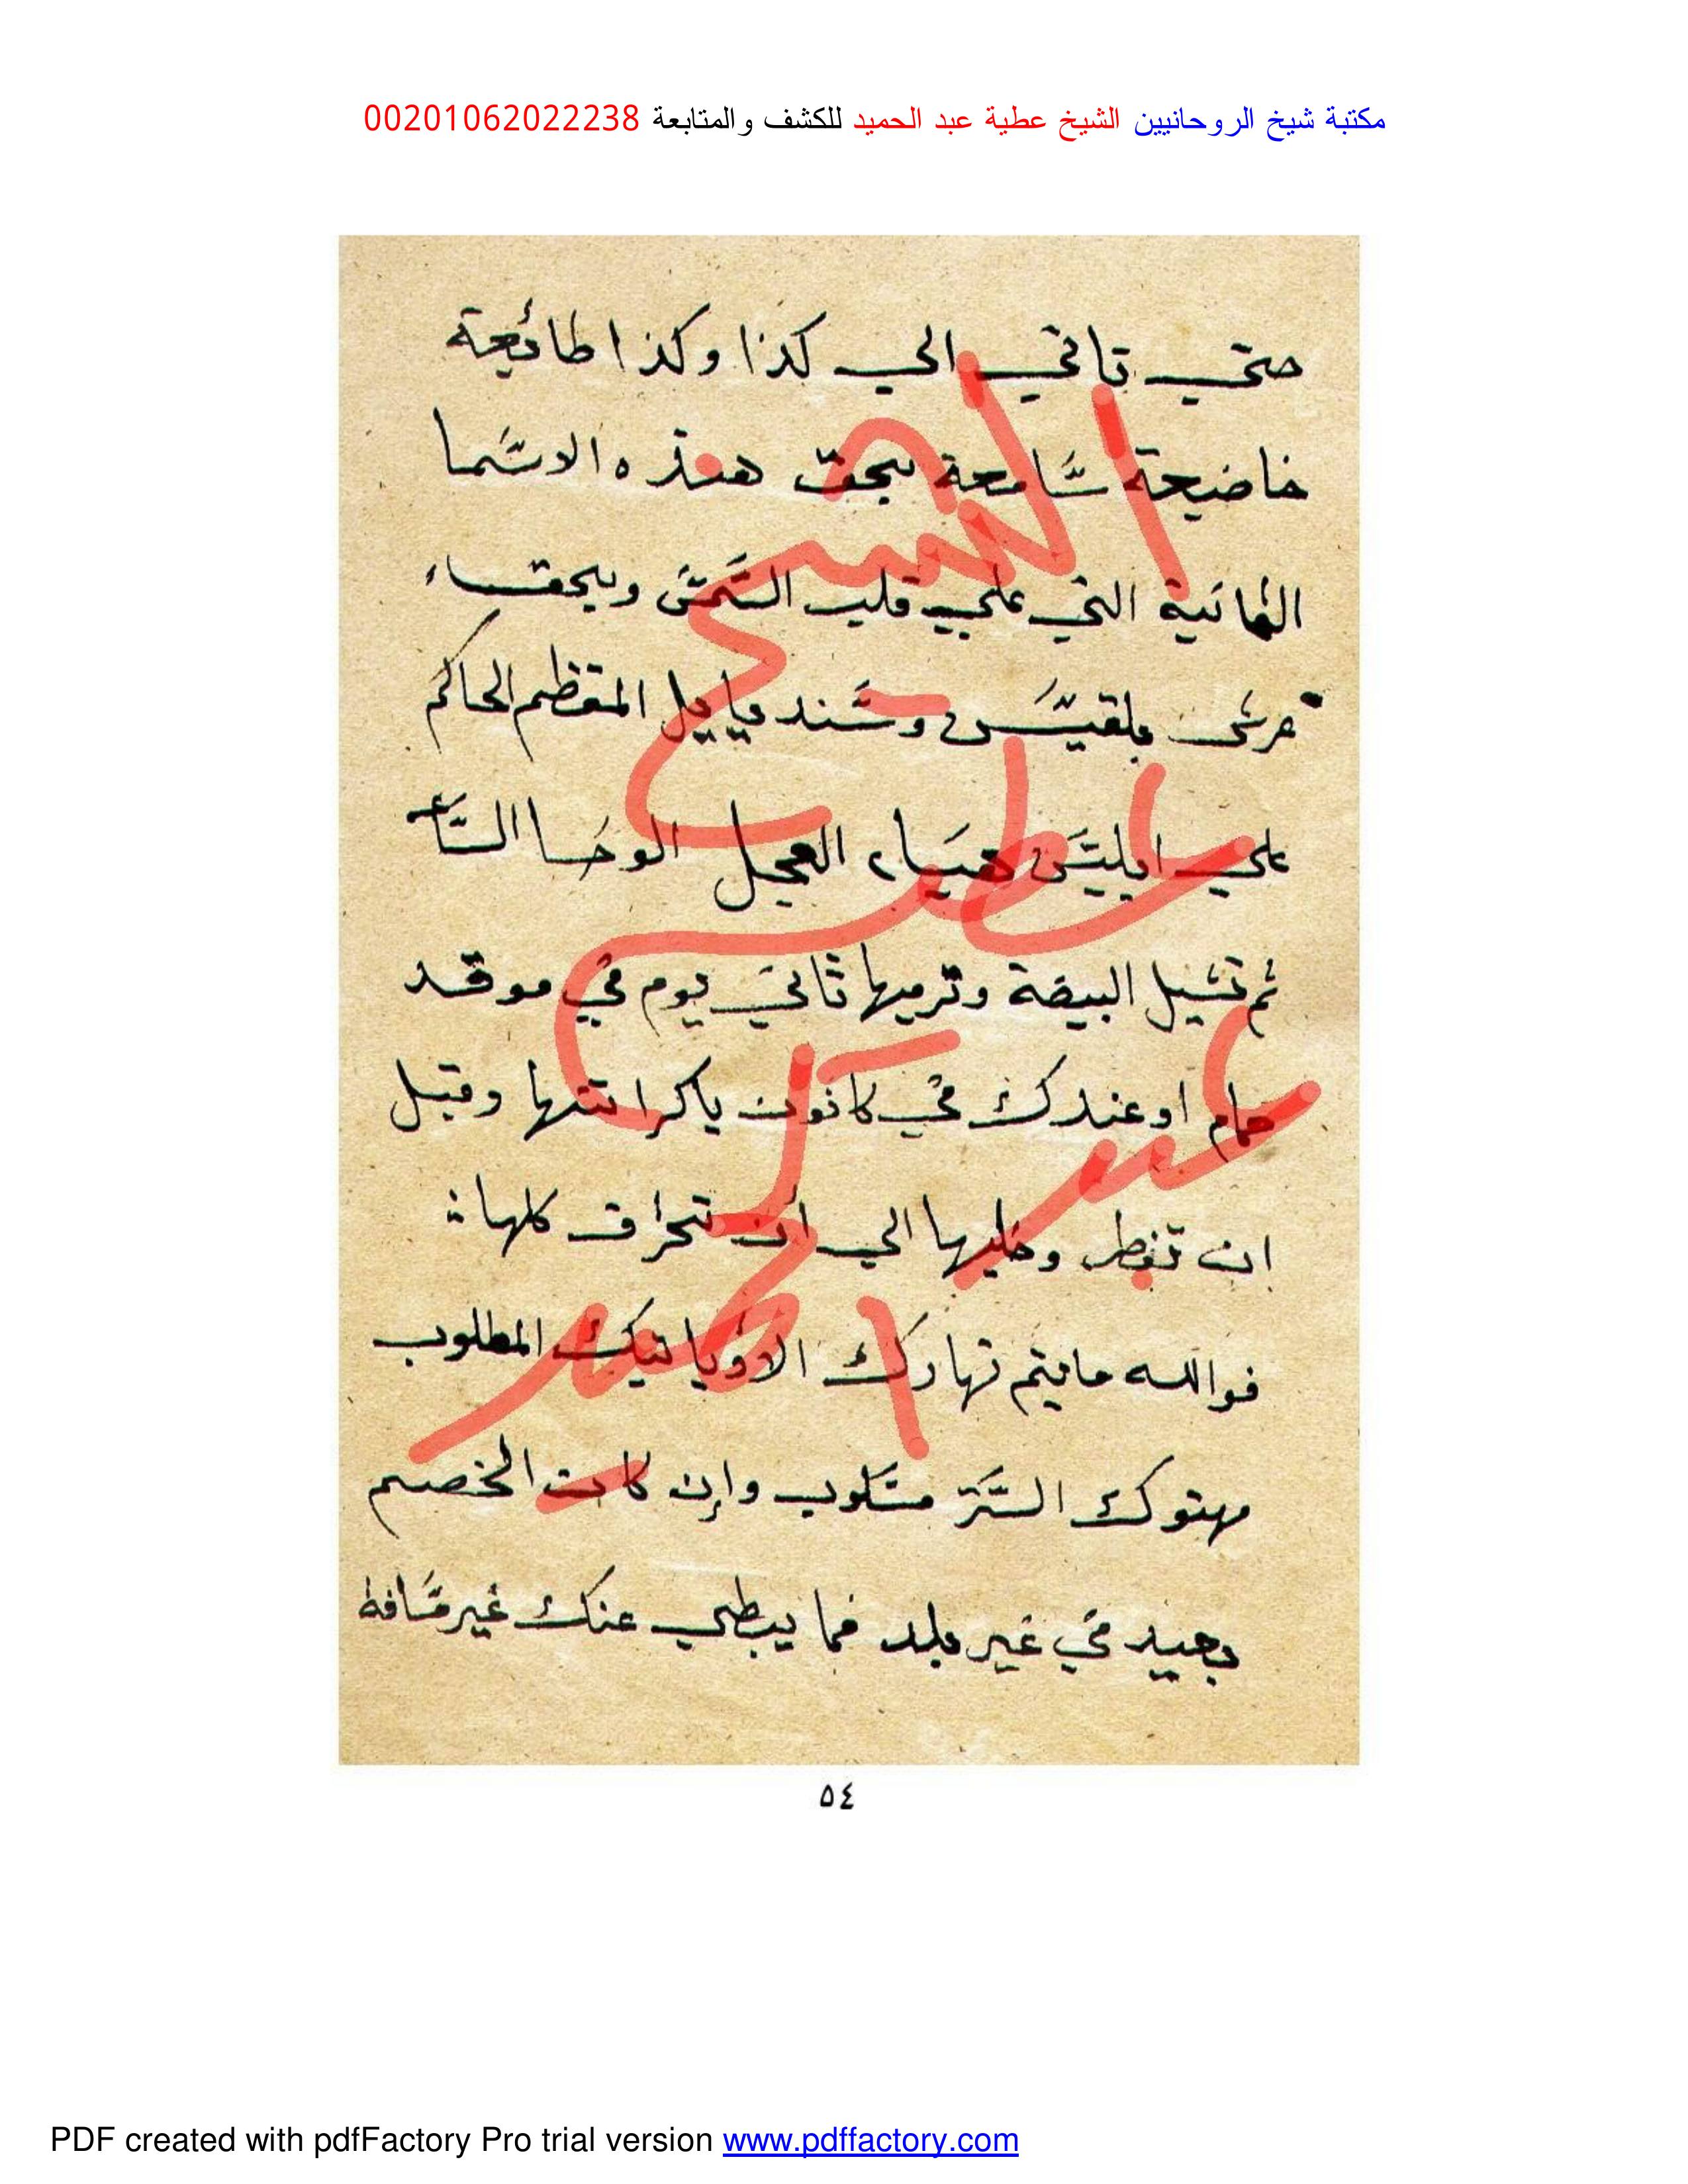 مكتبة شيخ الروحانيين الشيخ عطية عبد الحميد للكشف والمتابعة 00201062022238
حتي تاتي الي كذا وكذا طائعة
خاضيعة سامعة بحق هذه الاسما
الثمانية التي علي قلب الشمس وبحق
عرش بلقيس وسندياييل المعظم الحاكم
علي ابليس هيا العجل الوحا الساعه
ثم تشيل البيضة وترميها ثاني يوم في موقد
حمام او عندك في كانون ياكرا تتها وقبل
ان تفطر وخليها الي ان تحرق كلها
فوالله مايتم نهارك الا ويا تيك المطلوب
مهتوك الستر مسلوب وان كان الخصم
بعيد في غير بلد فما يبطي عنك غير مسافة
الشيخ
عطية
عبد
الحميد
٥٤
PDF created with pdfFactory Pro trial version www.pdffactory.com